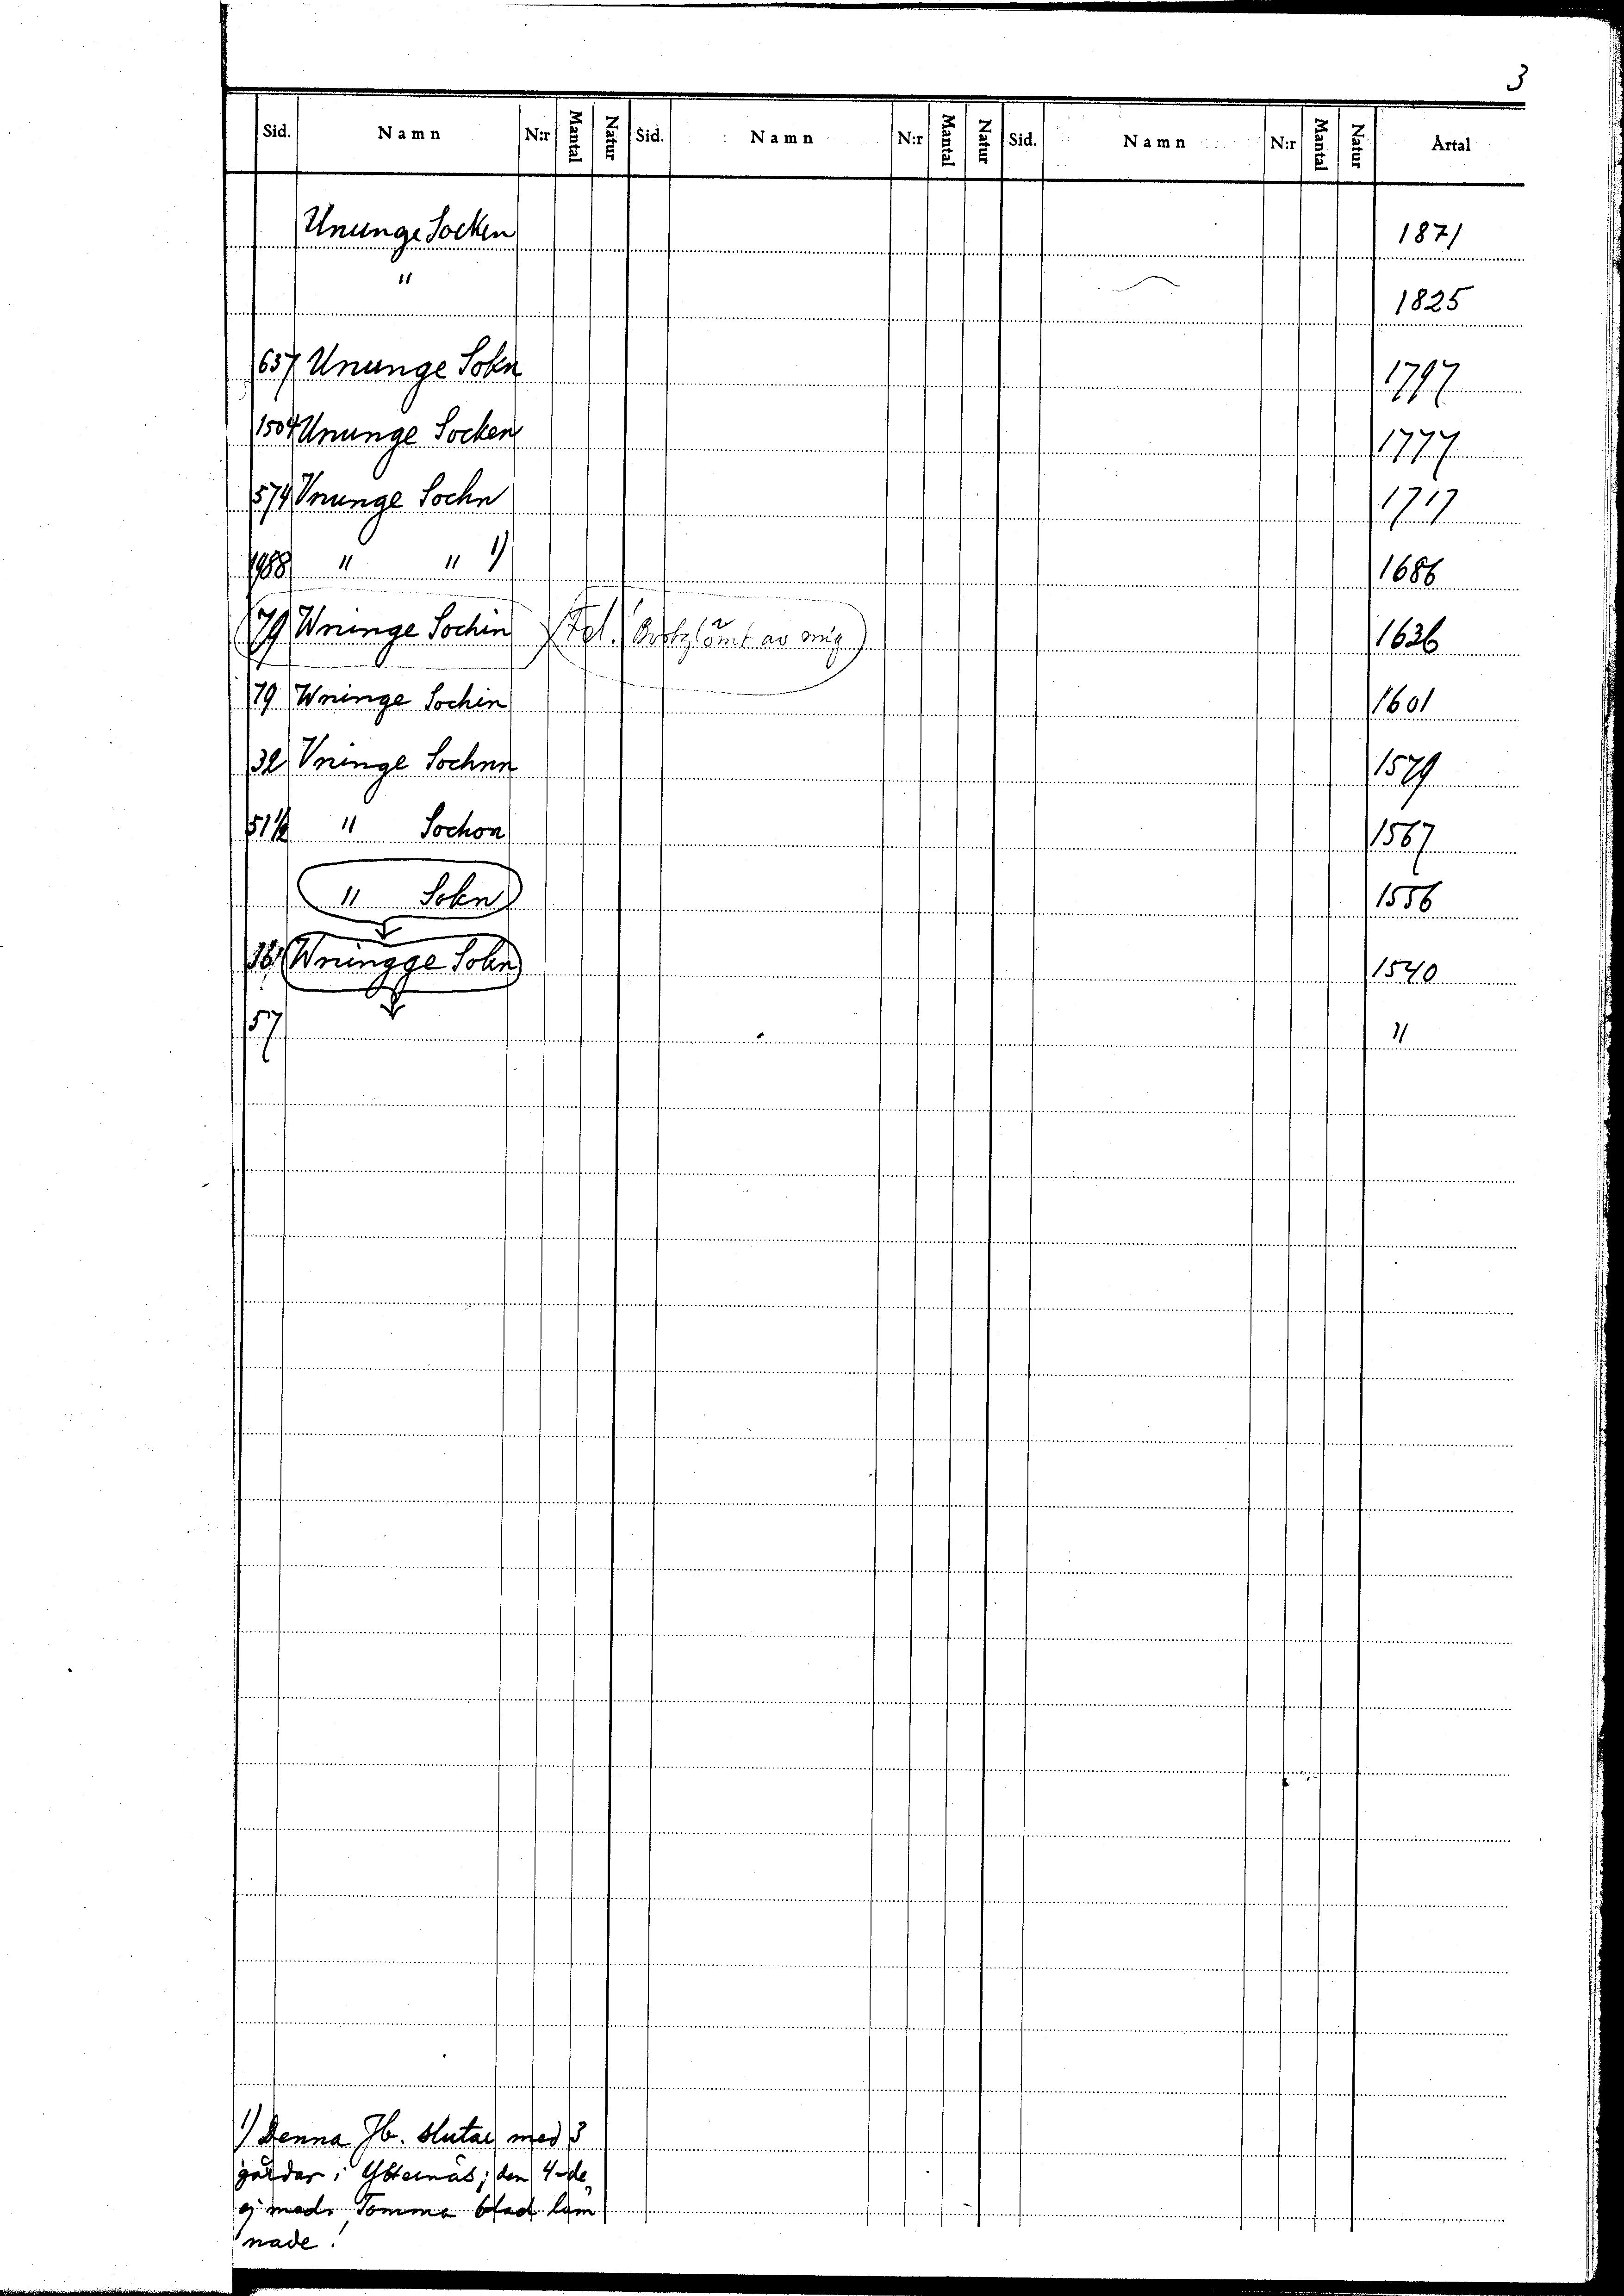 3
Sid. Namn N:r Mantal Natur Sid. Namn N:r Mantal Natur Sid. Namn N:r Mantal Natur Årtal
Ununge Socken 1871
" 1825
637 Ununge Sokn 1797
1504 Ununge Socken 1777
574 Vnunge Sochn 1717
1988 " " 1) 1686
79 Wninge Sochin Fel! av mig 1636
79 Wninge Sochin 1601
32 Vninge Sochnn 1579
51½ " Sochon 1567
" Sokn 1556
Wningge Sokn 1540
57 "
1) Denna Jb. slutar med 3
gårdar i Ysternäs; den 4-de
ej med. Tomma blad läm
nade!